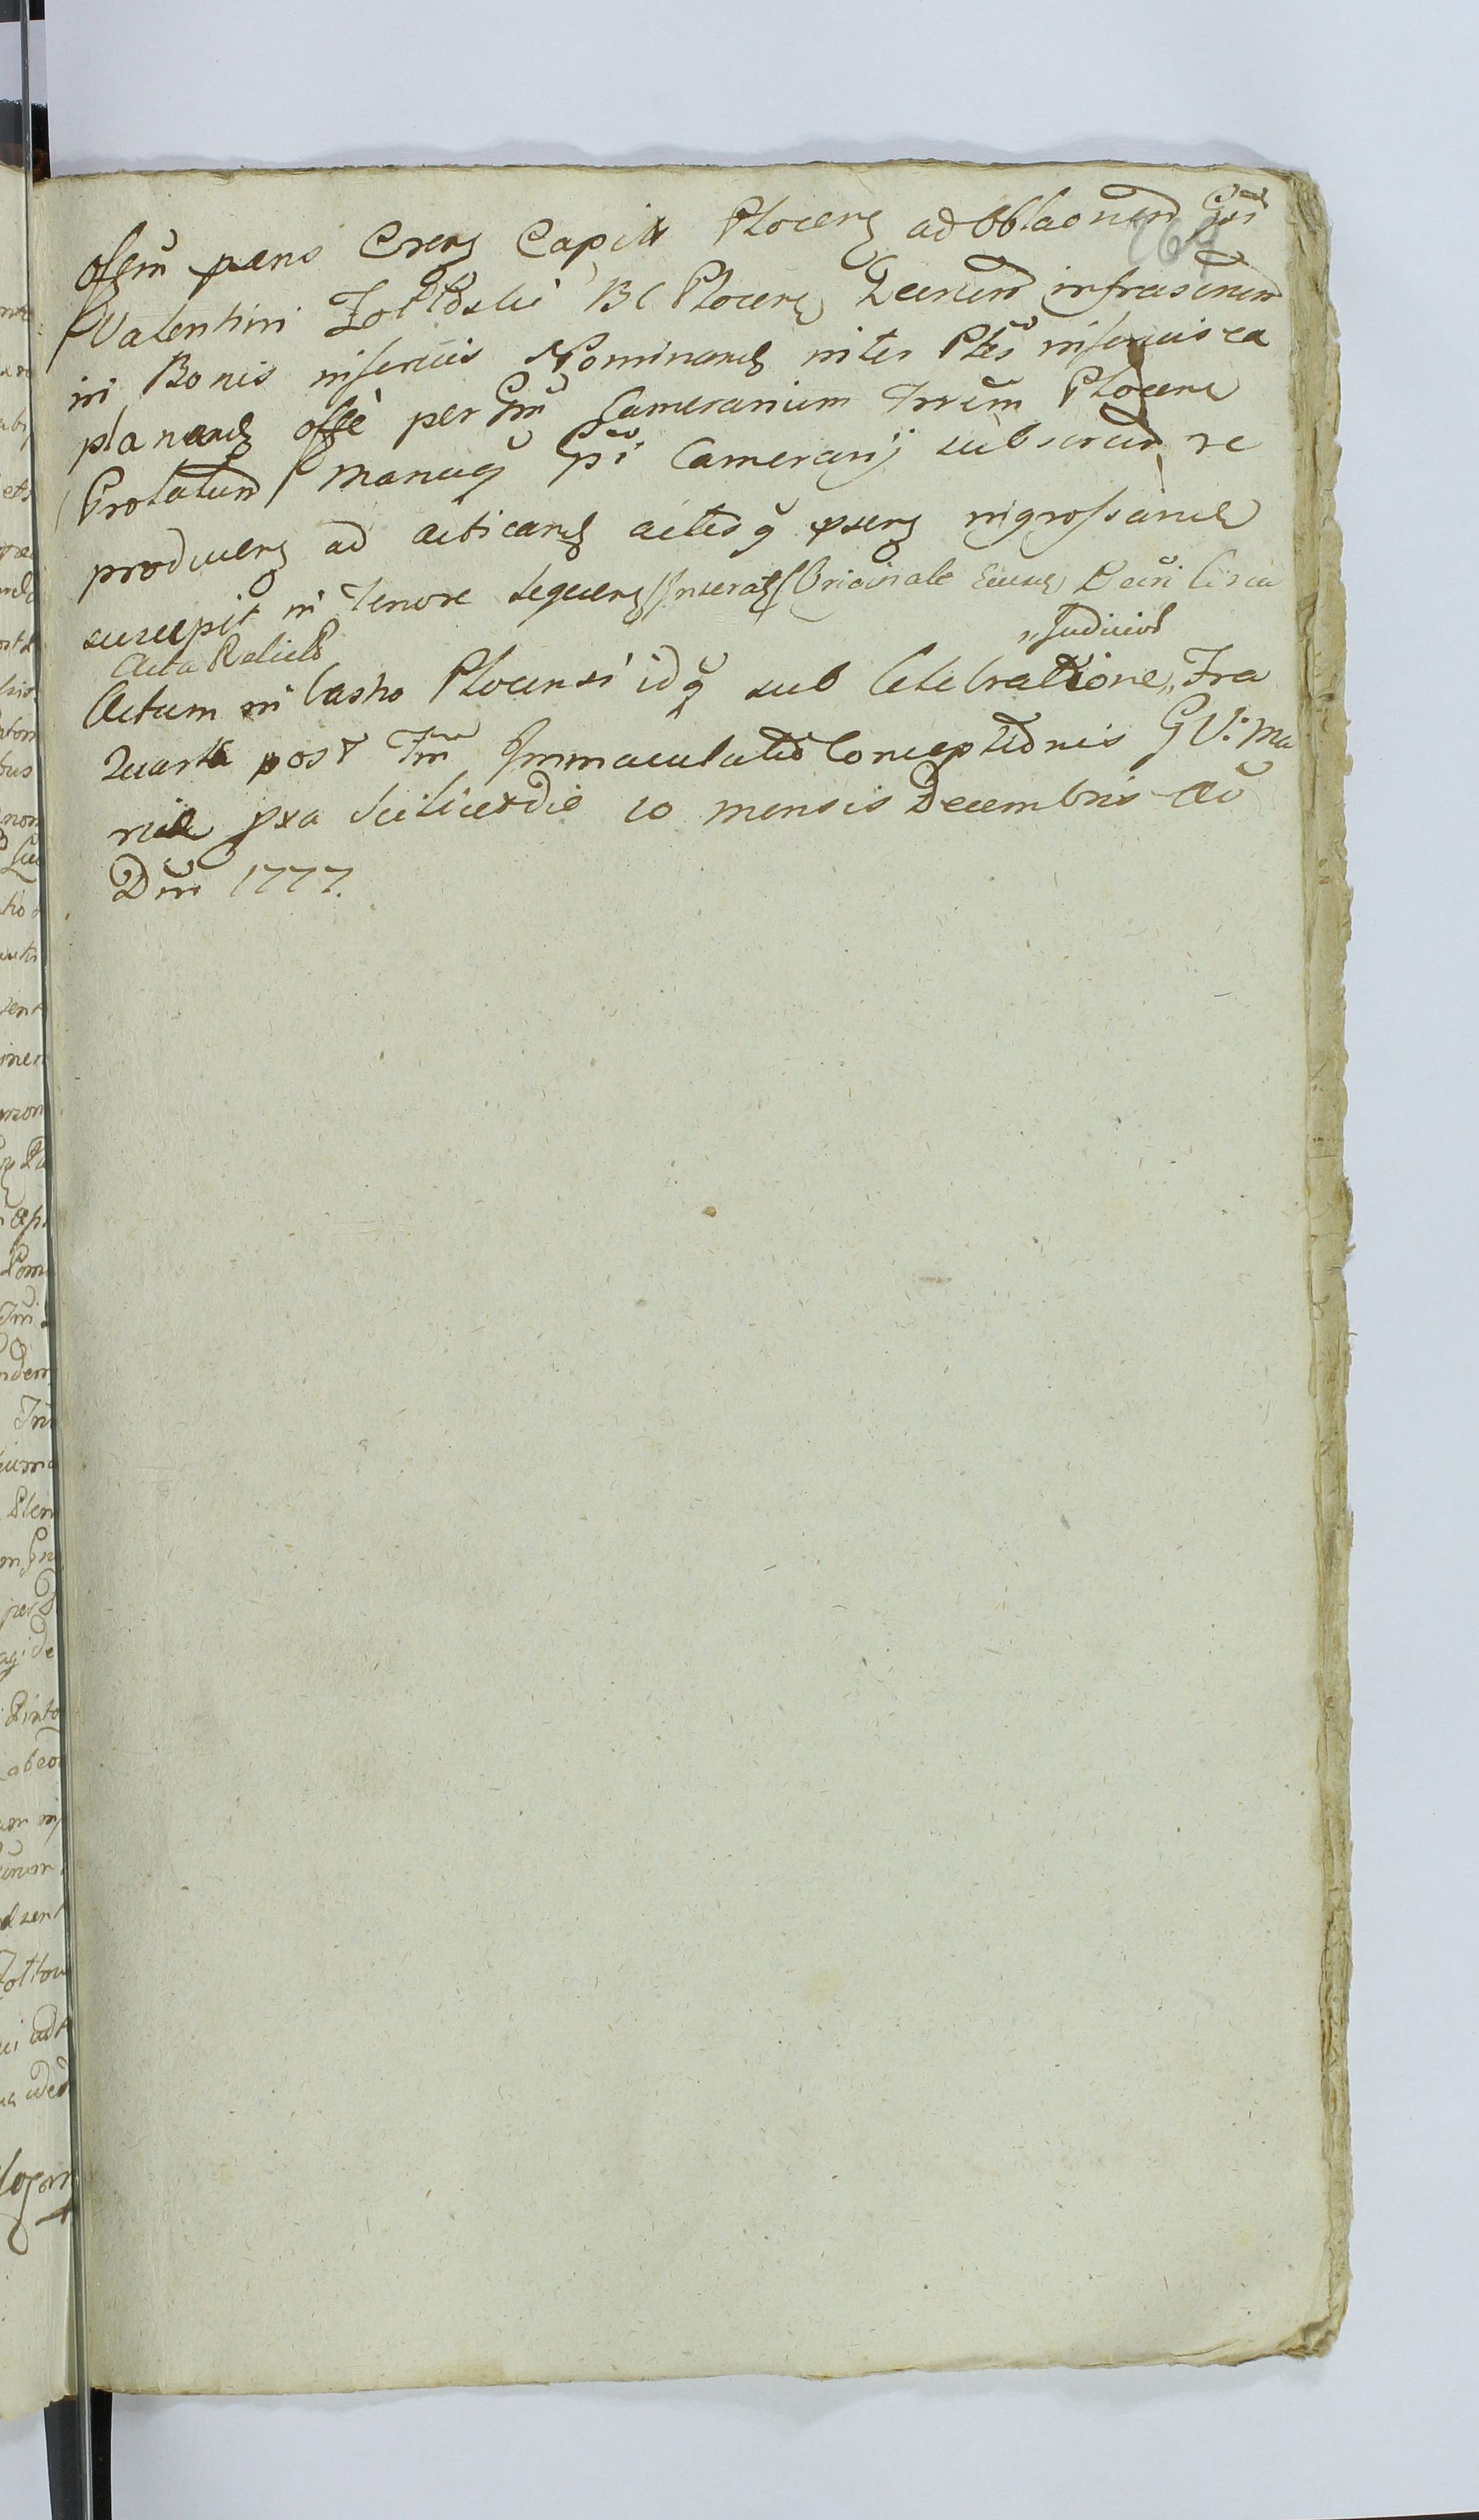 Offm pens Crens Capitt Plocens ad Oblaonem Gsi
Valentini Zołtoslii BC Plocens Decretum infrascrium
in Bonis inferius Nominand inter Ptes inferius ea
planand offe per Gm Camerarium Trrum Plocens
Prolatum manuq Gsi Camerarij subscrum re
producens ad acticand actisq psens ingrossand
suscepit in Tenore sequens Originale Eiusd Decri Circa
Acta Relicto
Actum in Castro Plocensi idq sub Celebratione „Judicior„ Fra
Quarta post Ftm Immaculatae Conceptionis B V: Ma
riae pxa scilicet die 10 mensis Decembris Ao
Dni 1777.